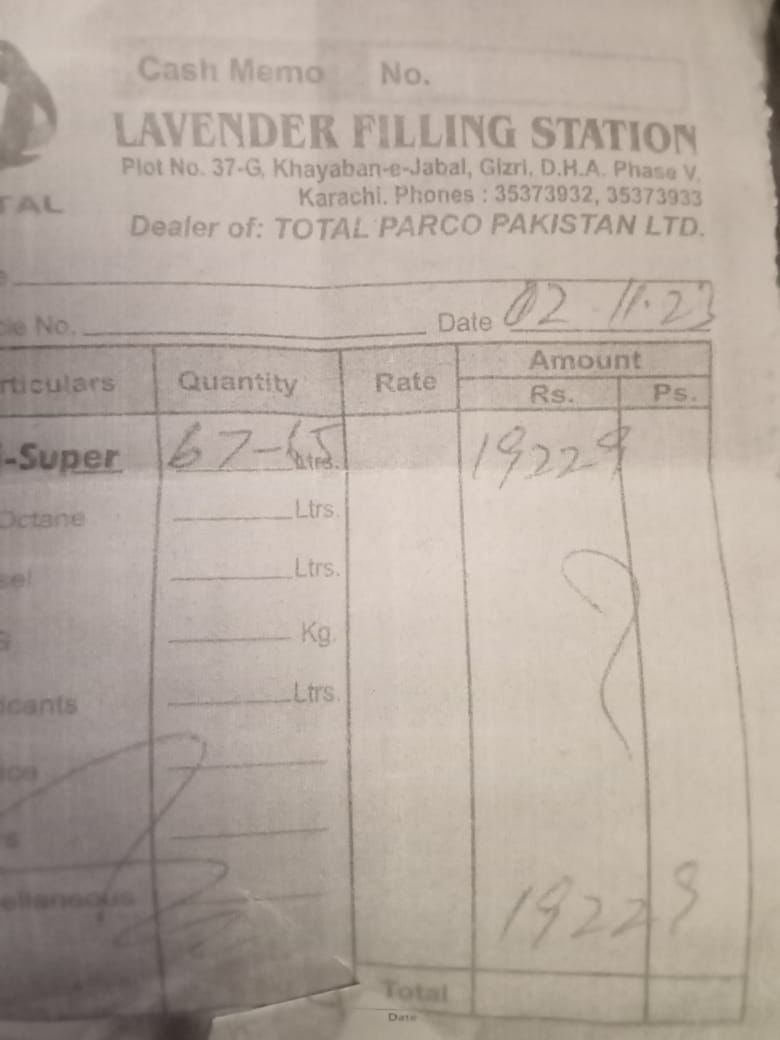 Cash Memo No.
LAVENDER FILLING STATION
Plot No. 37-G, Khayaban-e-Jabal, Gizri, D.H.A. Phase V,
Karachi. Phones : 35373932, 35373933
TAL
Dealer of: TOTAL PARCO PAKISTAN LTD.
cle No. Date 02.11.23
rticulars Quantity Rate Amount
Rs. Ps.
-Super 67-65 Ltrs. 19229
Octane Ltrs.
sel Ltrs.
Kg.
icants Ltrs.
ice
s
ellaneous
19229
Total
Date